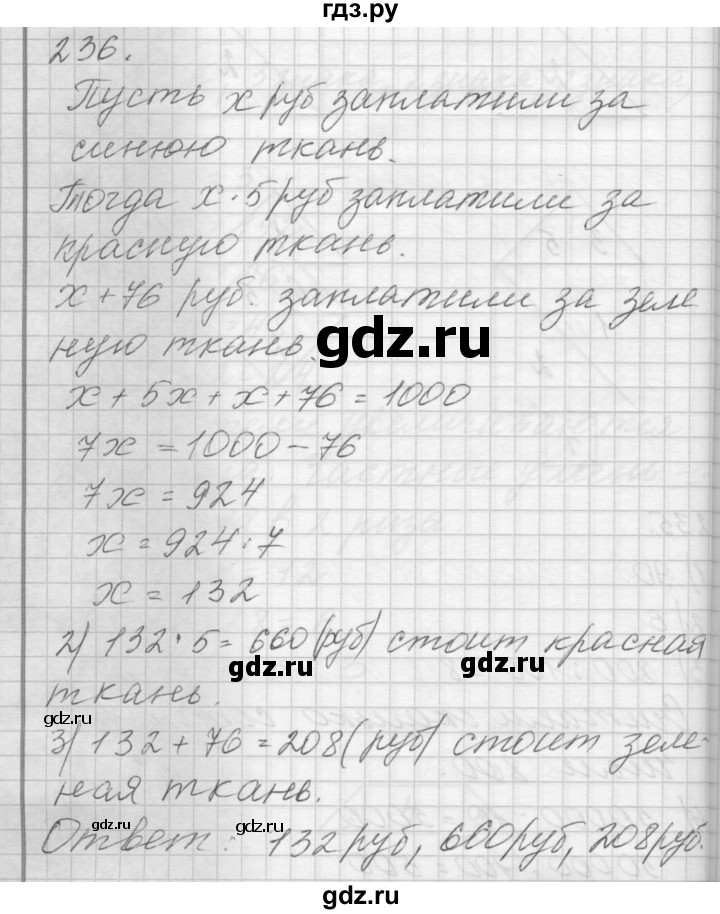 гдз.ру
236.
Пусть x руб заплатили за
синюю ткань.
Тогда x · 5 руб заплатили за
красную ткань.
x + 76 руб. заплатили за зеле
ную ткань.
gdz.ru
x + 5x + x + 76 = 1000
7x = 1000 - 76
7x = 924
x = 924 : 7
x = 132
2) 132 · 5 = 660 (руб) стоит красная
gdz.ru gdz.ru
ткань.
3) 132 + 76 = 208 (руб) стоит зеле-
ная ткань.
gdz.ru gdz.ru
Ответ: 132 руб, 660 руб, 208 руб.
gdz.ru